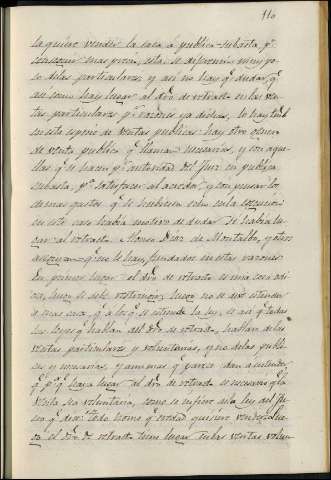 110
la quiere vender la cosa á publica subasta, pr
conseguir mas precio, esta se diferencia muy po
co de las particulares, y asi no hay qe dudar, qe
asi como hay lugar al dro de retracto en las ven
tas particulares pr razones ya dichas, lo hay tamb
en esta especie de ventas publicas: hay otro genero
de venta publica qe llaman necesarias, y son aque
llas qe se hacen pr autoridad del Juez en publica
subasta, pa satisfacer al acreedor, y con pensar los
demas gastos qe se hubiesen en la egecucion
en este caso habia motivo de dudar si habra lu
gar al retracto. Alonso Diaz de Montalbo, y otros
aseguran qe no le hay, fundados en estas razones
En primer lugar el dro de retracto es una cosa odi
osa, luego se debe restringir, luego no se debe estender
a mas cosa, qe á las qe se estiende la ley, es asi qe todas
las leyes qe hablan del dro de retracto, hablan de las
ventas particulares y voluntarias, y no de las publi
cas y necesarias, y aun mas qe parece dan a entender
qe pa qe haya lugar al dro de retracto es necesario qe la
venta sea voluntaria, como se infiere de la ley del Fue
ro qe dice: todo home qe heredad quisiere vender
el dro de retracto tiene lugar en las ventas volun